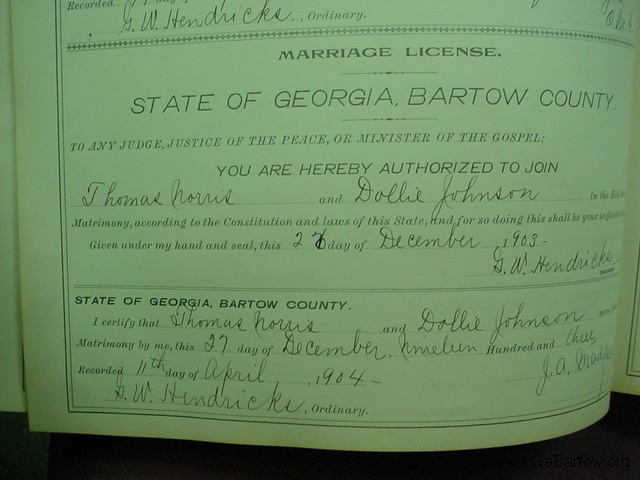 Recorded day of
G. W. Hendricks, Ordinary.
MARRIAGE LICENSE.
STATE OF GEORGIA, BARTOW COUNTY.
TO ANY JUDGE, JUSTICE OF THE PEACE, OR MINISTER OF THE GOSPEL:
YOU ARE HEREBY AUTHORIZED TO JOIN
Thomas Norris and Dollie Johnson in the Holy
Matrimony, according to the Constitution and laws of this State, and for so doing this shall be your sufficient
Given under my hand and seal, this 26 day of December, 1903-
G. W. Hendricks.
ORDINARY
STATE OF GEORGIA, BARTOW COUNTY.
I certify that Thomas Norris and Dollie Johnson were
Matrimony by me, this 27 day of December, nineteen Hundred and three
Recorded 11th day of April, 1904- J. A. Madd
G. W. Hendricks, Ordinary.
www.GaBartow.org